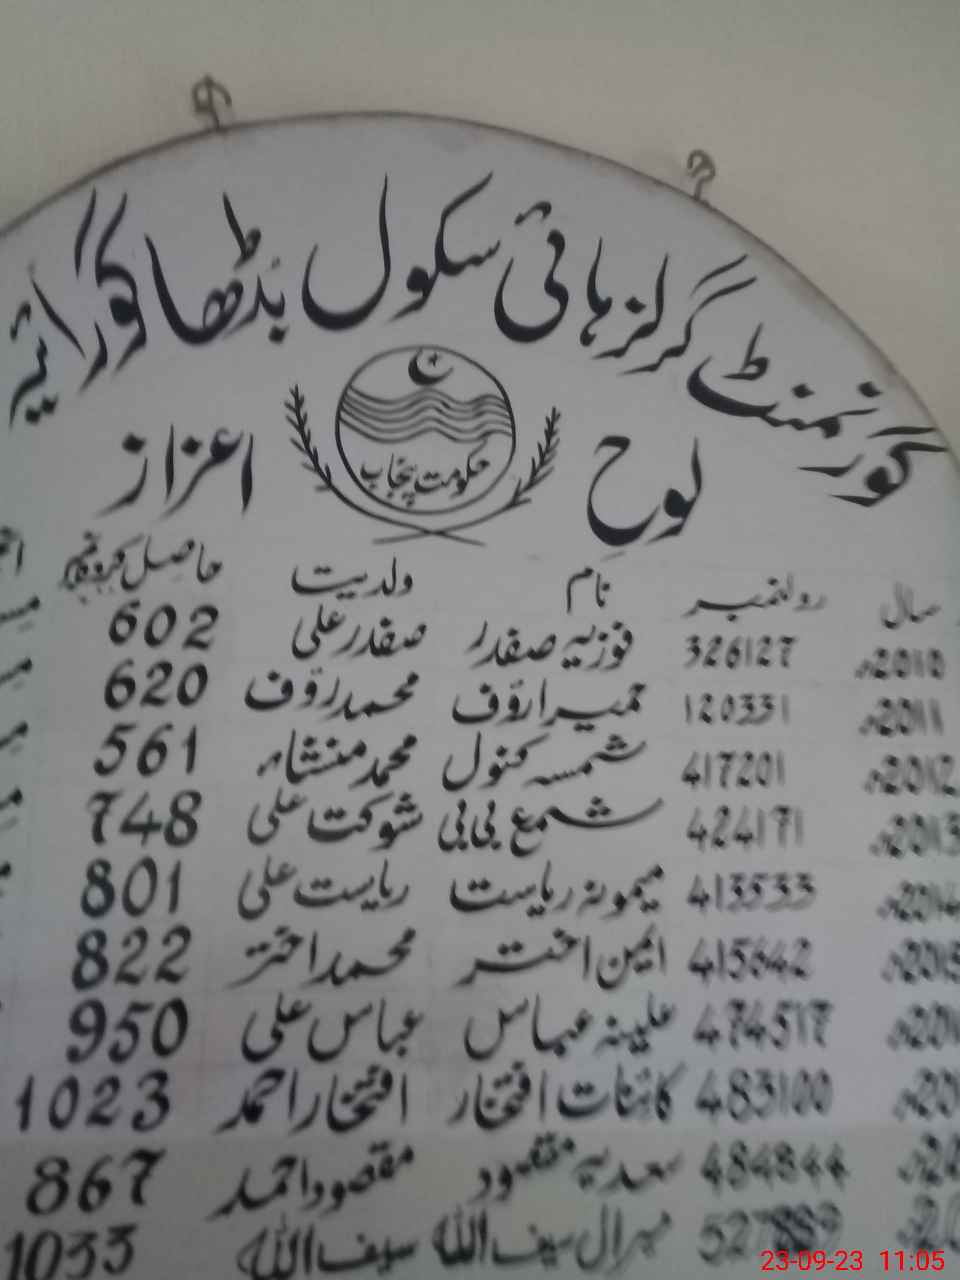 گورنمنٹ گرلز ہائی سکول بڈھا گورائیہ
حکومت پنجاب
لوح اعزاز
سال رولنمبر نام ولدیت حاصل کردہ نمبر
2010ء 326127 فوزیہ صفدر صفدر علی 602
2011ء 120331 حمیرا رؤف محمد رؤف 620
2012ء 417201 شمسہ کنول محمد منشاء 561
2013ء 424171 شمع بی بی شوکت علی 748
2014ء 413533 میمونہ ریاست ریاست علی 801
2015ء 415642 ایمن اختر محمد اختر 822
474517 علینہ عباس عباس علی 950
483100 کائنات افتخار افتخار احمد 1023
484844 سعدیہ مقصود مقصود احمد 867
527889 سیف اللہ سیف اللہ 1033
23-09-23 11:05